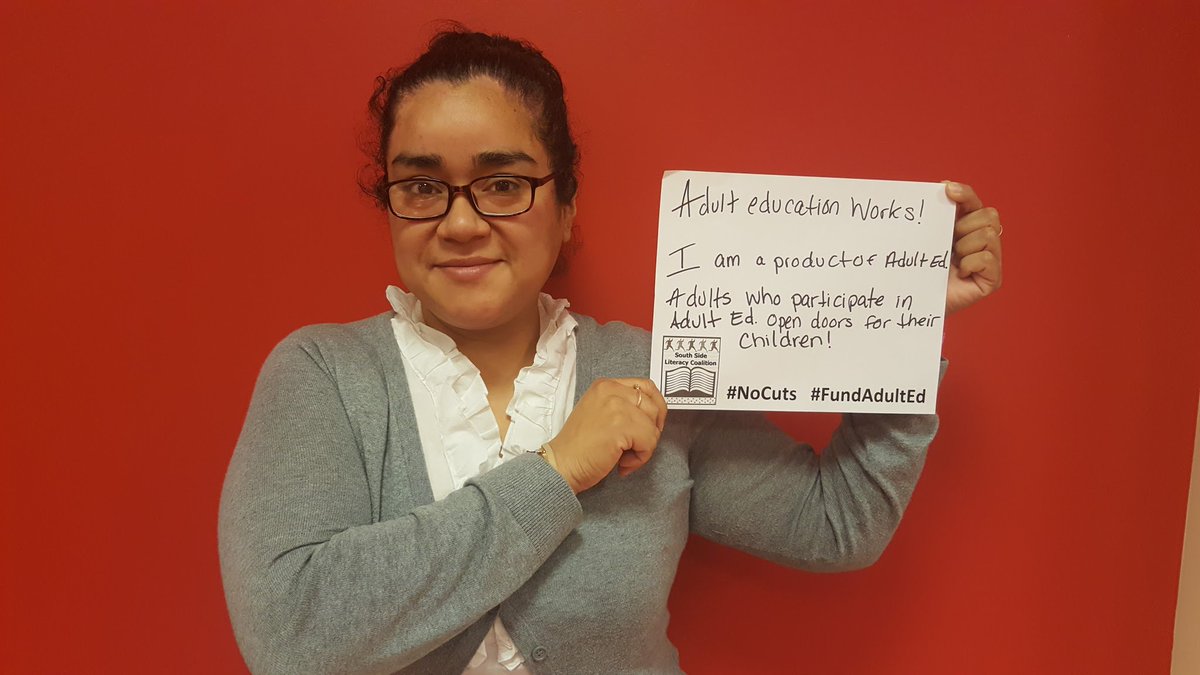 Adult education works!
I am a product of Adult Ed.
Adults who participate in
Adult Ed. open doors for their
children!
South Side
Literacy Coalition
#NoCuts #FundAdultEd